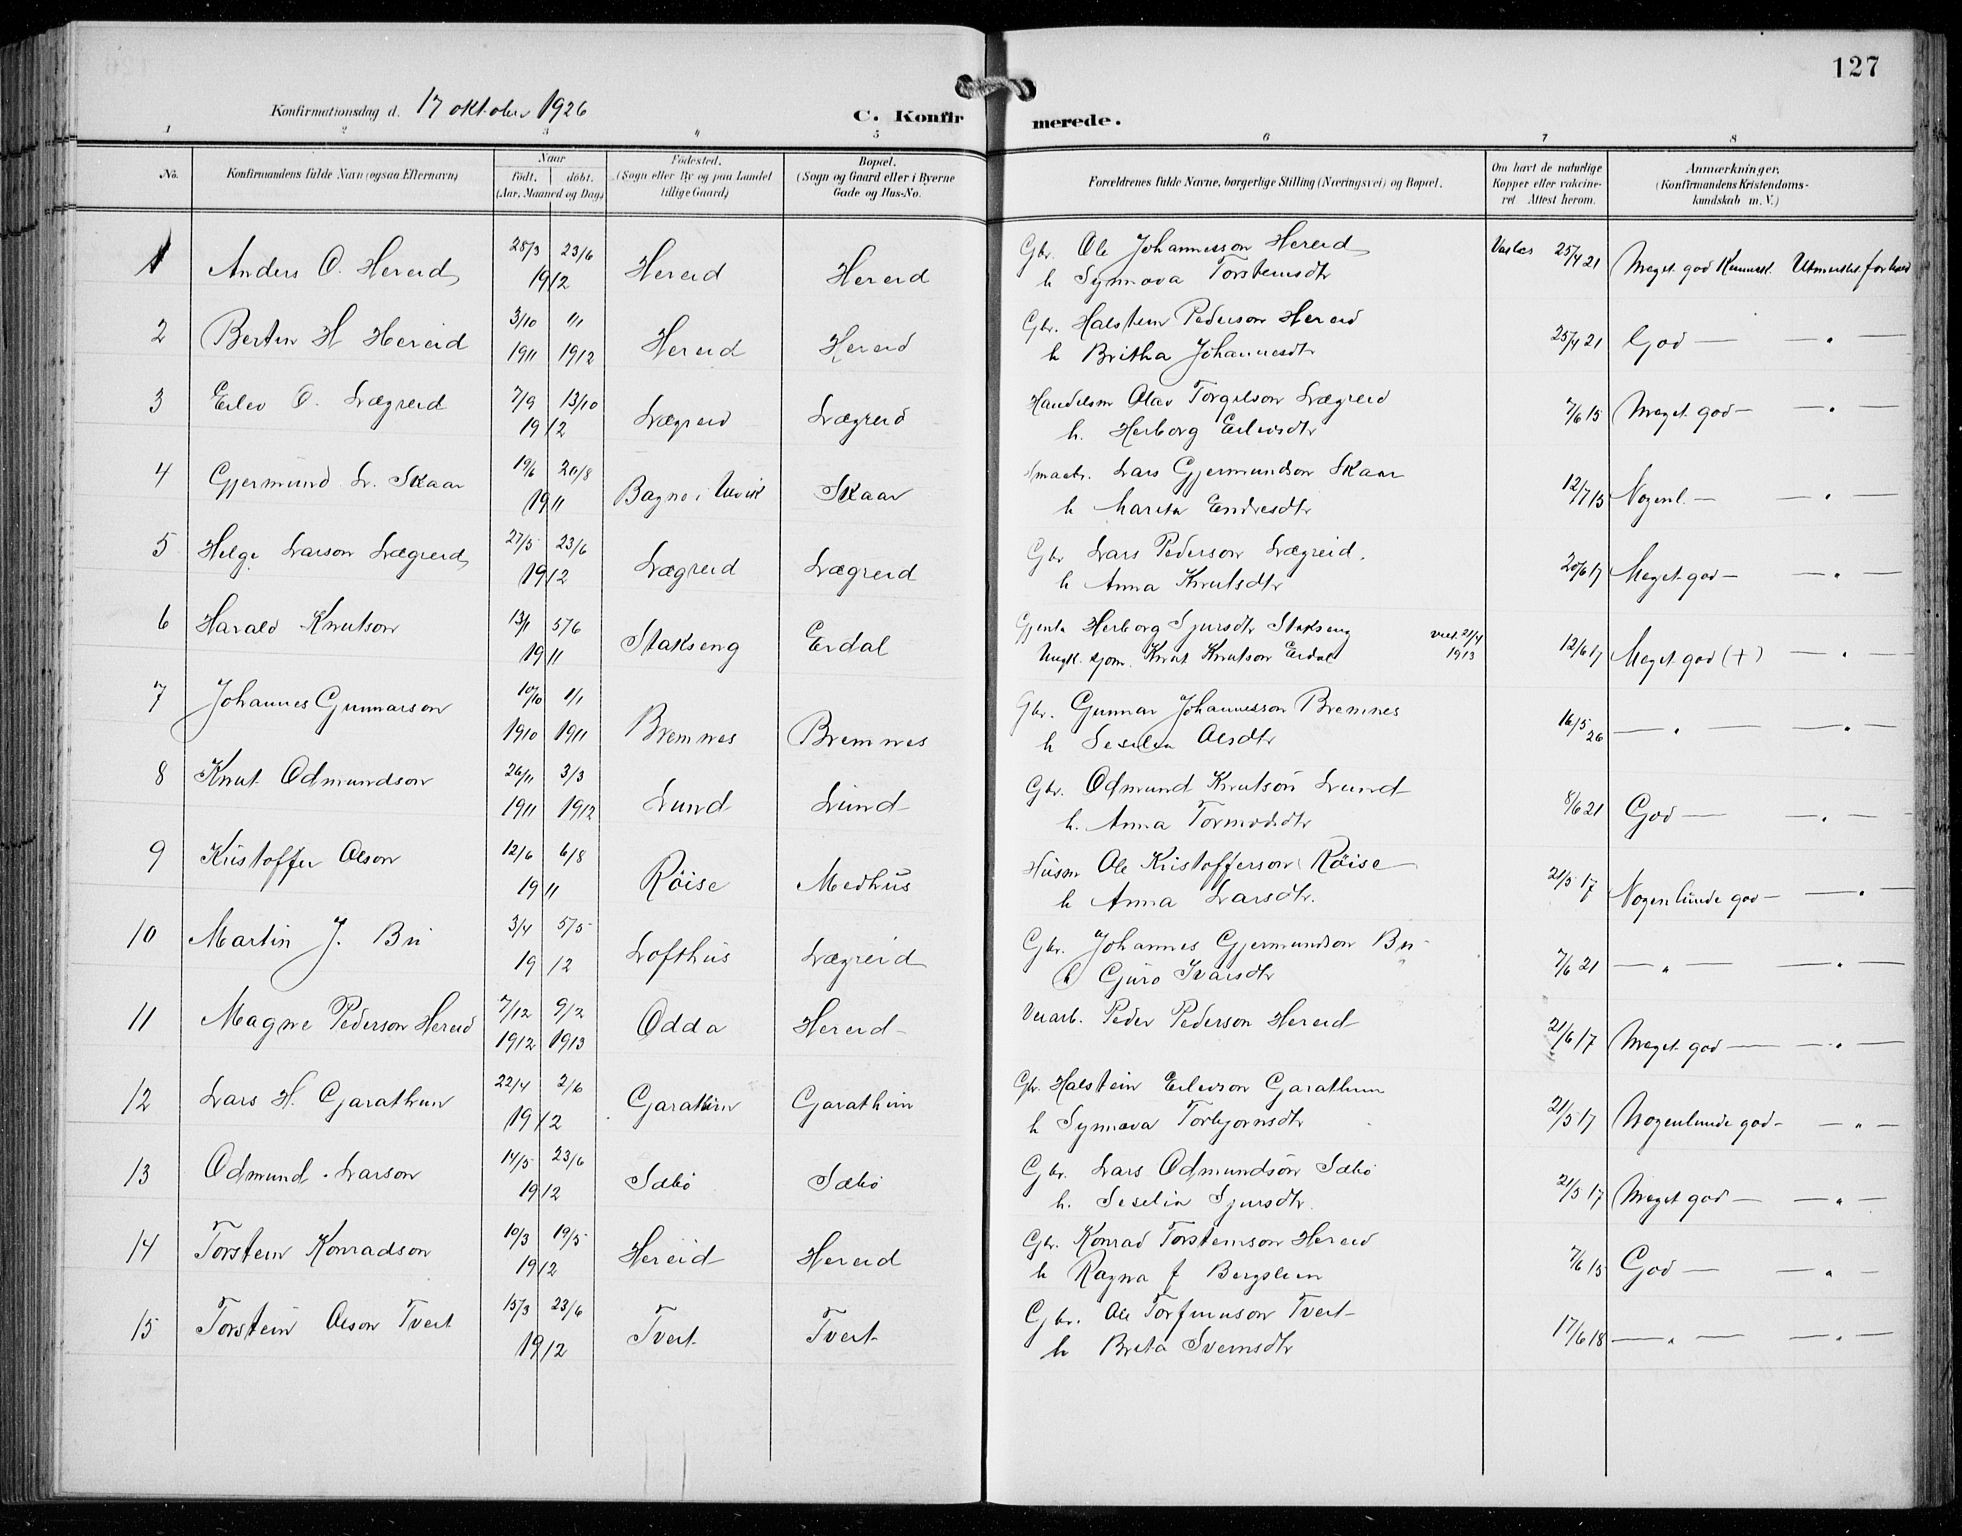 127
Konfirmationsdag d. 17 oktober 1926
C. Konfirmerede.
1 2 3 " 5 6 7 8
No. Konfirmandens fulde Navn (ogsaa Efternavn) Naar født. døbt. (Aar, Maaned og Dag) Fødested. (Sogn eller By og paa Landet tillige Gaard) Bopæl. (Sogn og Gaard eller i Byerne Gade og Hus-No. Forældrenes fulde Navne, borgerlige Stilling (Næringsvei) og Bopæl. Om havt de naturlige Kopper eller vakcineret Attest herom. Anmærkninger. (Konfirmandens Kristendomskundskab m. V.)
1 Anders O. Hereid 28/3 23/6 1912 Hereid Hereid Gbr. Ole Johannesson Hereid
h Synnøva Torsteinsdtr 25/4 21 Meget god Kunnsk. Utmerket forhold
2 Bertin H Hereid 3/10 1911 1/1 1912 Hereid Hereid Gbr. Halstein Pederson Hereid
h Britha Johannesdtr 25/4 21 God — — " —
3 Eilev O. Lægreid 7/9 13/10 1912 Lægreid Lægreid Handelsm Olav Torgilson Lægreid
h. Herborg Eilevsdtr 7/6 15 Meget god — — " —
4 Gjermund L. Skaar 19/6 20/8 1911 Bagne i Ulvik Skaar Smaabr. Lars Gjermundson Skaar
h Marita Endresdtr 12/7 15 Nogenl. — — " —
5 Helge Larson Lægreid 27/5 23/6 1912 Lægreid Lægreid Gbr Lars Pederson Lægreid.
h Anna Knutsdtr 20/6 17 Meget god — — " —
6 Harald Knutson 13/1 5/6 1911 Stakseng Eidal Gjenta Herborg Sjursdtr Stakseng
Ungk. sjom. Knut Knutson Eidal 1913 12/6 17 Meget god (+) — " —
7 Johannes Gunnarson 10/10 1910 1/1 1911 Bremnes Bremnes Gbr. Gunnar Johannesson Bremnes
h Seselia Olsdtr 16/5 26 — " — — " —
8 Knut Odmundson 26/11 1911 3/3 1912 Lund Lund Gbr. Odmund Knutson Lund
h. Anna Tormodsdtr 8/6 21 God — — " —
9 Kristoffer Olson 12/6 6/8 1911 Röise Medhus Husm Ole Kristofferson Röise
h Anna Larsdtr. 21/5 17 Nogenlunde god — — " —
10 Martin J. Bu 3/4 5/5 1912 Lofthus Lægreid Gbr. Johannes Gjermundson Bu
h Guro Ivarsdtr 7/6 21 — " — — " —
11 Magne Pederson Hereid 7/12 1912 9/2 1913 Odda Hereid Veiarb. Peder Pederson Hereid 21/6 17 Meget god — — " —
12 Lars H. Garathun 22/4 2/6 1912 Garathun Garathun Gbr. Halstein Eilevson Garathun
h Synnøva Torbjørnsdtr 21/5 17 Nogenlunde god — — " —
13 Odmund Larson 14/5 23/6 1912 Sæbö Sæbö Gbr. Lars Odmundson Sæbö
h. Seselia Sjursdtr. 21/5 17 Meget god — — " —
14 Torstein Konradson 10/3 19/5 1912 Hereid Hereid Gbr. Konrad Torsteinson Hereid
h Ragna f Bergslien 7/6 15 God — — " —
15 Torstein Olson Tveit 15/3 23/6 1912 Tveit Tveit Gbr. Ole Torfinnson Tveit
h Brita Sveinsdtr 17/6 18 — " — — " —